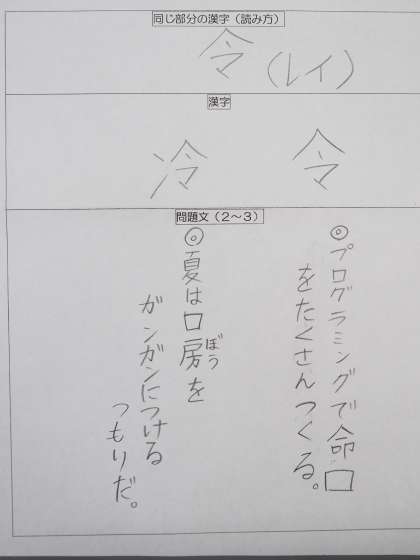 同じ部分の漢字（読み方）
令（レイ）
漢字
令
冷
問題文（２～３）
◎プログラミングで命□
をたくさんつくる。
◎夏は□房を
ぼう
ガンガンにつける
つもりだ。